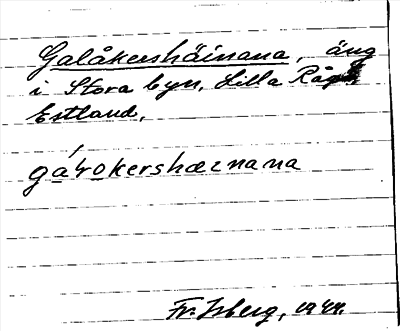 Galåkershäinana, äng
i Stora byn, Lilla Rågö
Estland.
gálokershæɩnana
Fr. Isberg, 1944.